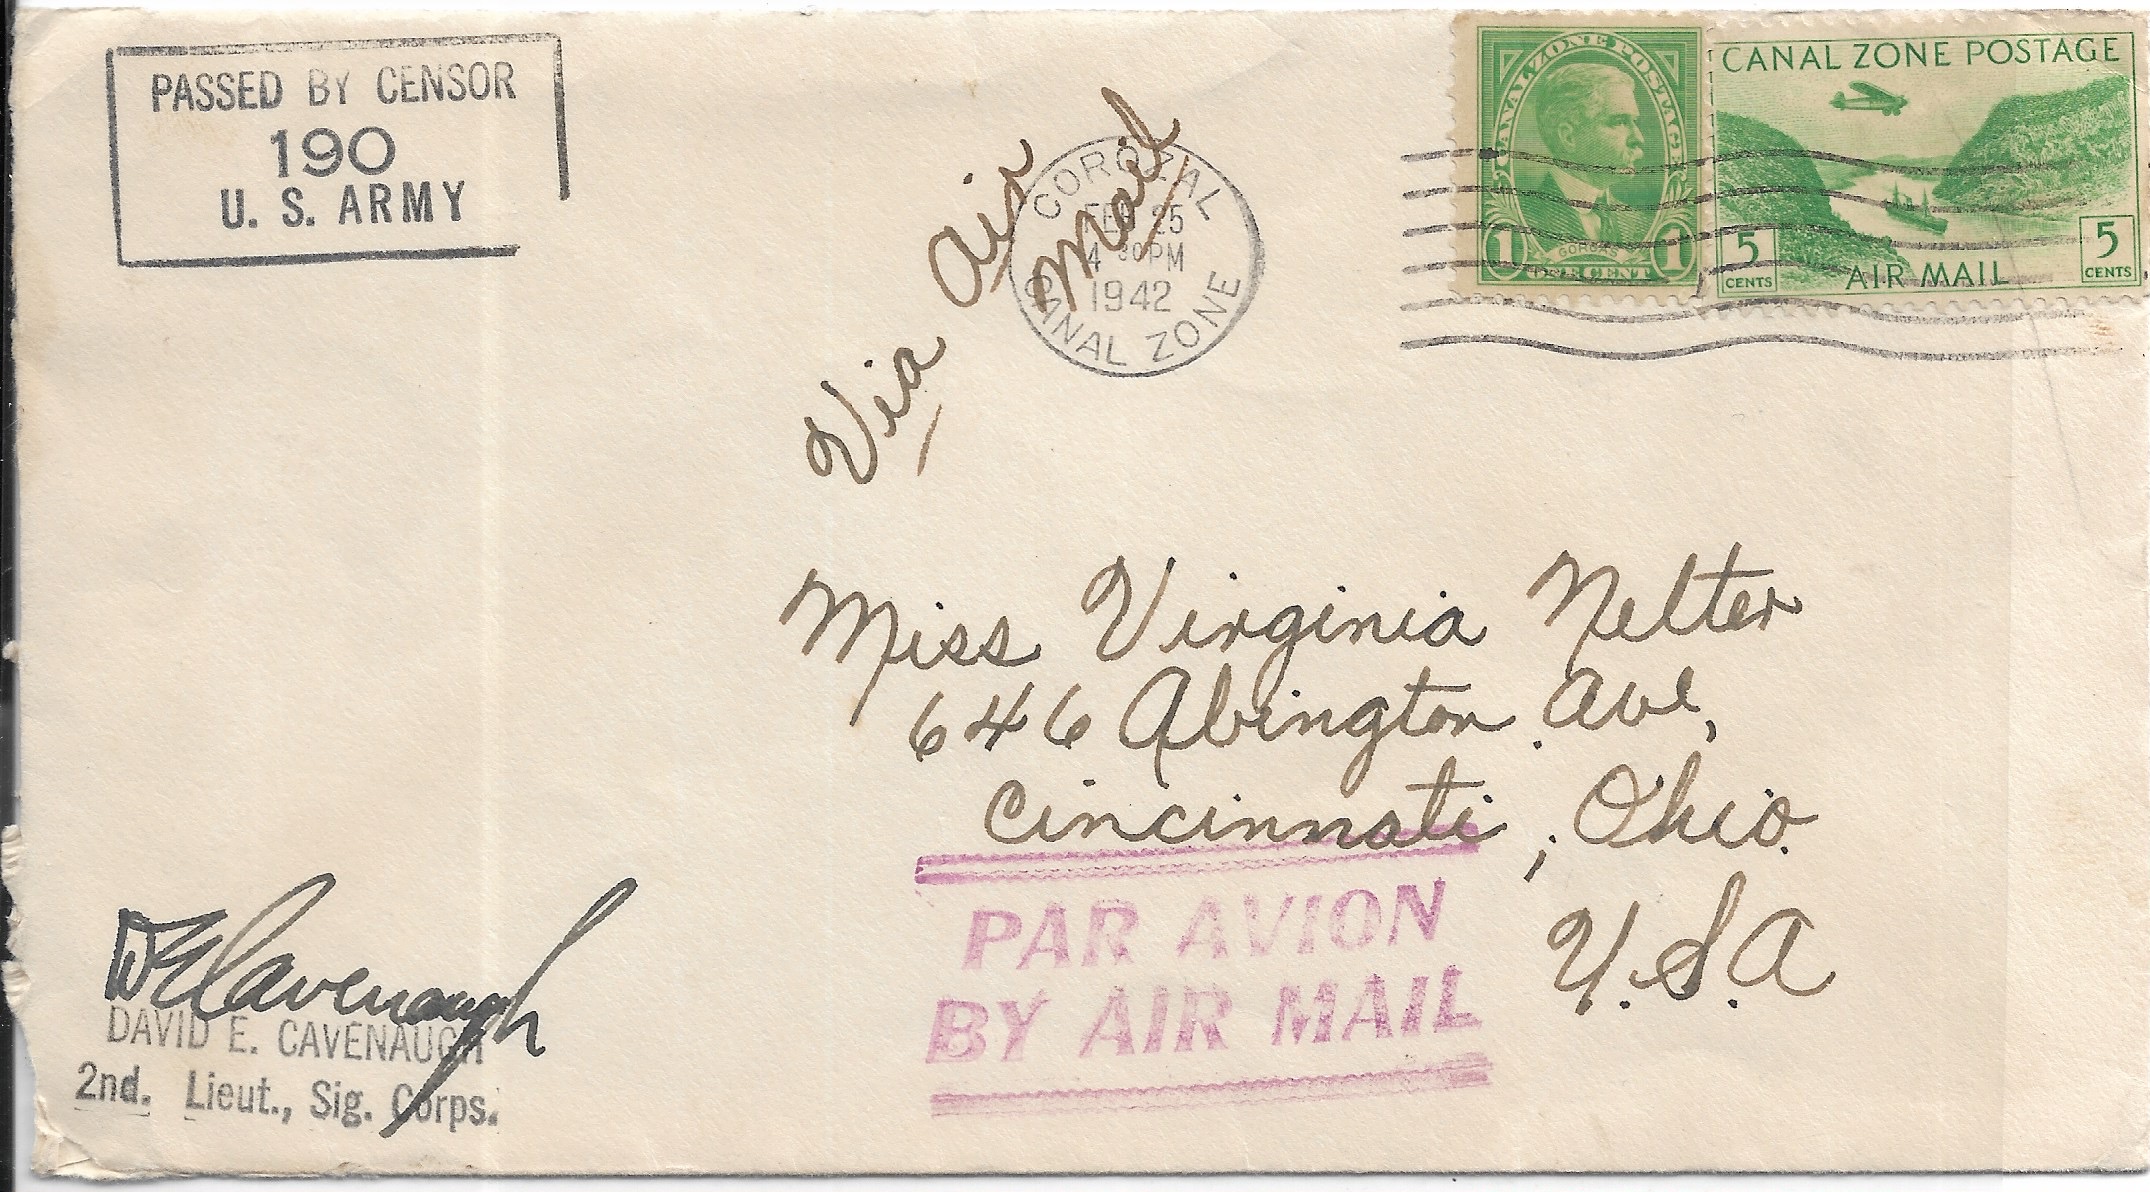 PASSED BY CENSOR
190
U. S. ARMY
Via Air
Mail
COROZAL
FEB 25
4 30 PM
1942
CANAL ZONE
CANAL ZONE POSTAGE
1 1
GORGAS
ONE CENT
CANAL ZONE POSTAGE
5
CENTS
AIR MAIL
5
CENTS
Miss Virginia Nelter
646 Abington Ave,
Cincinnati, Ohio.
U.S.A
PAR AVION
BY AIR MAIL
D E Cavenaugh
DAVID E. CAVENAUGH
2nd. Lieut., Sig. Corps.